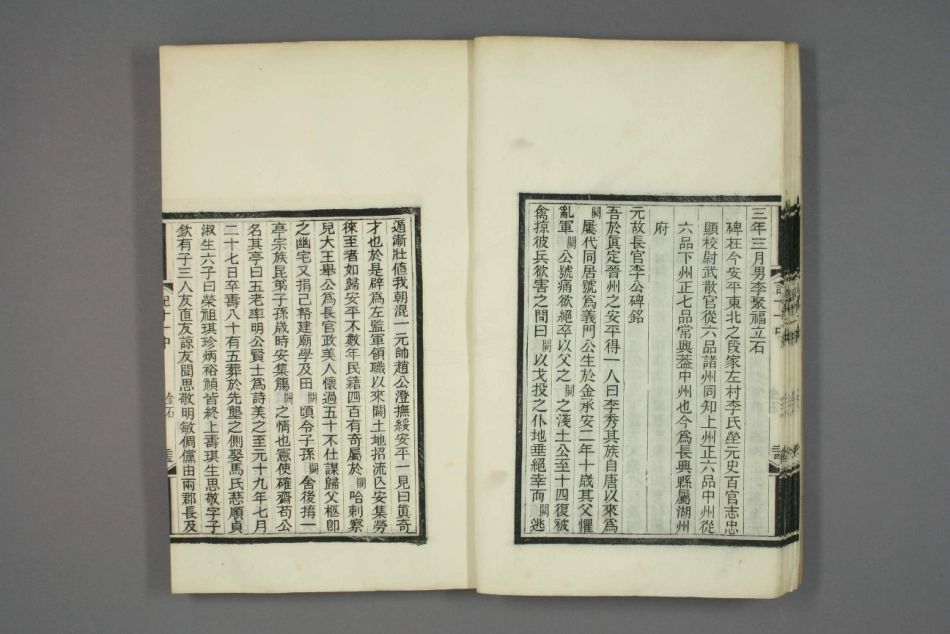 三年三月男李聚福立石
碑在今安平東北之段家左村李氏塋元史百官志忠
顯校尉武散官從六品諸州同知上州正六品中州從
六品下州正七品常興葢中州也今爲長興縣屬湖州
府
元故長官李公碑銘
吾於眞定晉州之安平得一人曰李秀其族自唐以來爲
闕屢代同居號爲義門公生於金承安二年十歲其父罹
亂軍闕公號痛欲絕卒以父之闕之淺土公至十四復被
禽掠彼兵欲害之閒曰闕以戈投之仆地垂絕幸而闕逃
遁漸壯値我朝混一元帥趙公澄撫綏安平一見曰眞奇
才也於是辟爲左監軍領職以來闢土地招流亾安集勞
徠至者如歸安平不數年民籍四百有奇屬於闕哈剌察
兒大王舉公爲長官政美人懷過五十不仕謀歸父柩卽
之幽宅又捐己帑建廟學及田闕頃令子孫闕舍後構一
亭宗族昆弟子孫歳時安集觴闕之情也憲使確齋苟公
名其亭曰五老率明公賢士爲詩美之至元十九年七月
二十七日卒壽八十有五葬於先塋之側娶馬氏慈順貞
淑生六子曰榮祖琪珍炳裕禎皆終上壽琪生思敬字子
欽有子三人友直友諒友聞思敬明敏倜儻由兩郡長及